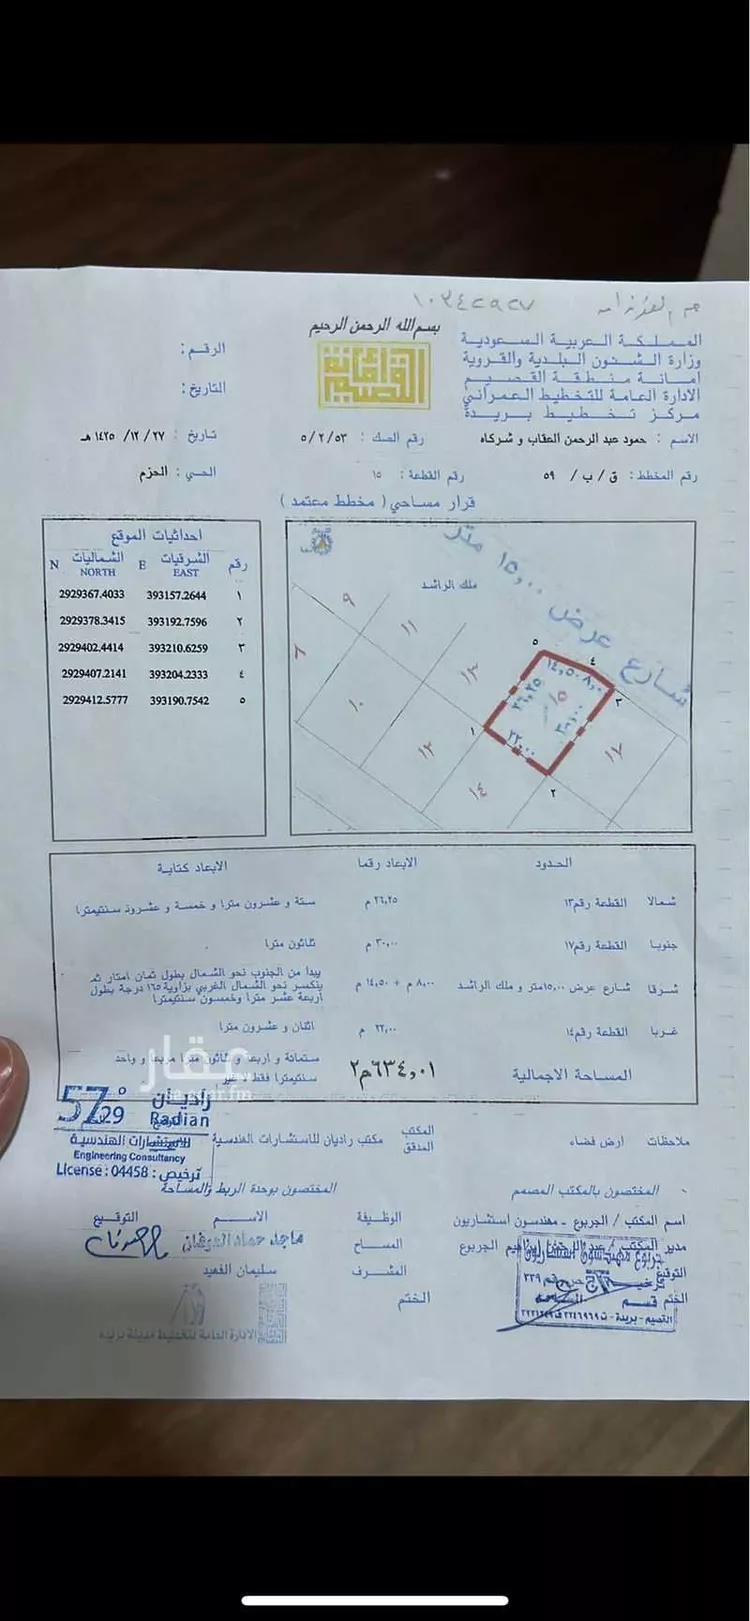 ١٠٣٤٢٩٢٧
بسم الله الرحمن الرحيم
المملكة العربية السعودية
وزارة الشئون البلدية والقروية
أمانة منطقة القصيم
الادارة العامة للتخطيط العمراني
مركز تخطيط بريدة
الرقم :
التاريخ :
أمانة القصيم
الاسم : حمود عبد الرحمن العقاب و شركاه رقم الصك : ٥/٢/٥٣ تاريخ : ١٤٢٥/١٢/٢٧ هـ
رقم المخطط : ق / ب / ٥٩ رقم القطعة : ١٥ الحي : الحزم
قرار مساحي ( مخطط معتمد )
احداثيات الموقع
رقم الشرقيات E الشماليات N
EAST NORTH
١ 393157.2644 2929367.4033
٢ 393192.7596 2929378.3415
٣ 393210.6259 2929402.4414
٤ 393204.2333 2929407.2141
٥ 393190.7542 2929412.5777
شارع عرض ١٥,٠٠ متر
ملك الراشد
٨ ٩ ١٠ ١١ ١٢ ١٣ ١٤ ١٥ ١٧
١ ٢ ٣ ٤ ٥
١٤,٥٠ ٨,٠٠
٢٦,٢٥
٣٠,٠٠
٢٢,٠٠
الحدود الابعاد رقما الابعاد كتابية
شمالا القطعة رقم١٣ ٢٦,٢٥ م ستة و عشرون مترا و خمسة و عشرون سنتيمترا
جنوبا القطعة رقم١٧ ٣٠,٠٠ م ثلاثون مترا
شرقا شارع عرض ١٥,٠٠متر و ملك الراشد ٨,٠٠ م + ١٤,٥٠ م يبدا من الجنوب نحو الشمال بطول ثمان امتار ثم
ينكسر نحو الشمال الغربي بزاوية ١٦٥ درجة بطول
أربعة عشر مترا وخمسون سنتيمترا
غربا القطعة رقم١٤ ٢٢,٠٠ م اثنان و عشرون مترا
المساحة الاجمالية ٦٣٤,٠١م٢ ستمائة و أربعة و ثلاثون مترا مربعا و واحد
سنتيمترا فقط لا غير
عقار
aqar.fm
57°29
راديان
Radian
للاستشارات الهندسية
Engineering Consultancy
License : 04458 : ترخيص
ملاحظات أرض فضاء المكتب المدقق مكتب راديان للاستشارات الهندسية
المختصون بالمكتب المصمم
المختصون بوحدة الربط والمساحة
اسم المكتب / الجربوع - مهندسون استشاريون
الوظيفة الاسم التوقيع
المساح
المشرف سليمان الفهيد
الختم
التوقيع
الختم
الادارة العامة لتخطيط مدينة بريدة